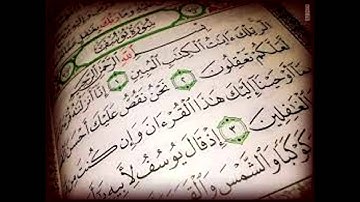 سُورَةُ يُوسُفَ
بِسْمِ ٱللَّهِ ٱلرَّحْمَٰنِ
الٓر تِلْكَ ءَايَٰتُ ٱلْكِتَٰبِ ٱلْمُبِينِ ١ إِنَّآ أَنزَلْنَٰهُ
لَّعَلَّكُمْ تَعْقِلُونَ ٢ نَحْنُ نَقُصُّ عَلَيْكَ أَحْسَنَ
بِمَآ أَوْحَيْنَآ إِلَيْكَ هَٰذَا ٱلْقُرْءَانَ وَإِن كُنتَ مِن
ٱلْغَٰفِلِينَ ٣ إِذْ قَالَ يُوسُفُ لِأَبِيهِ
كَوْكَبًا وَٱلشَّمْسَ